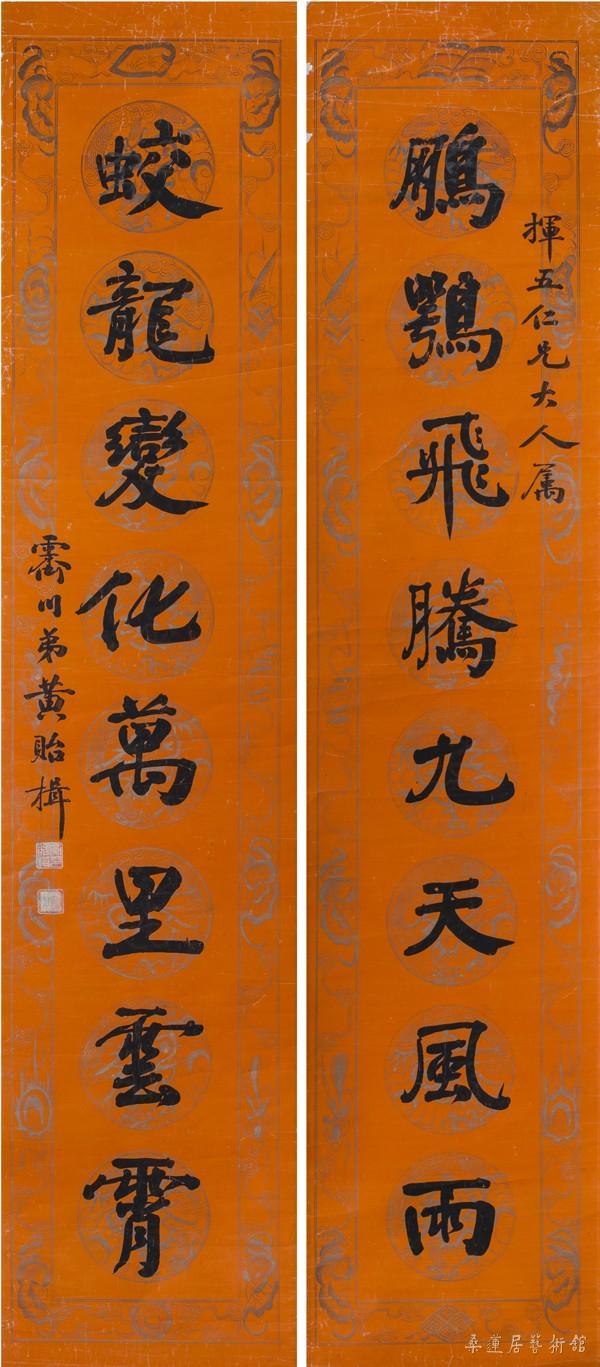 揮五仁兄大人属
鵬鶚飛騰九天風雨
蛟龍變化萬里雲霄
霱川弟黄貽楫
桑蓮居藝術館